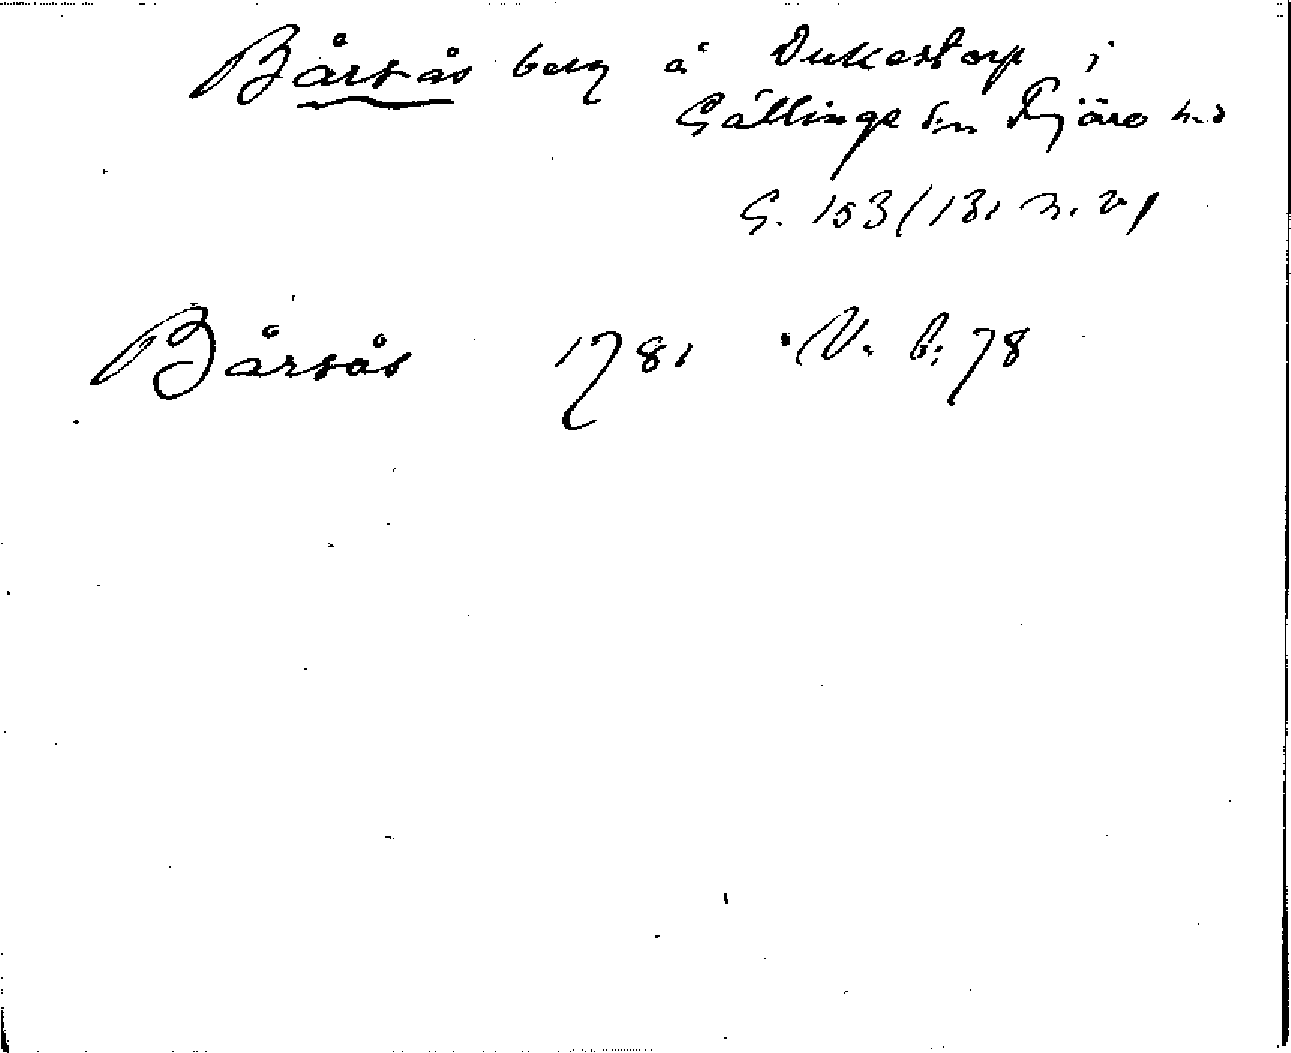 Bårsås berg å Dukestorp i
Gällinge sn Fjäre hd
G. 153 (131 n. v)
Bårsås 1781 V. b: 78